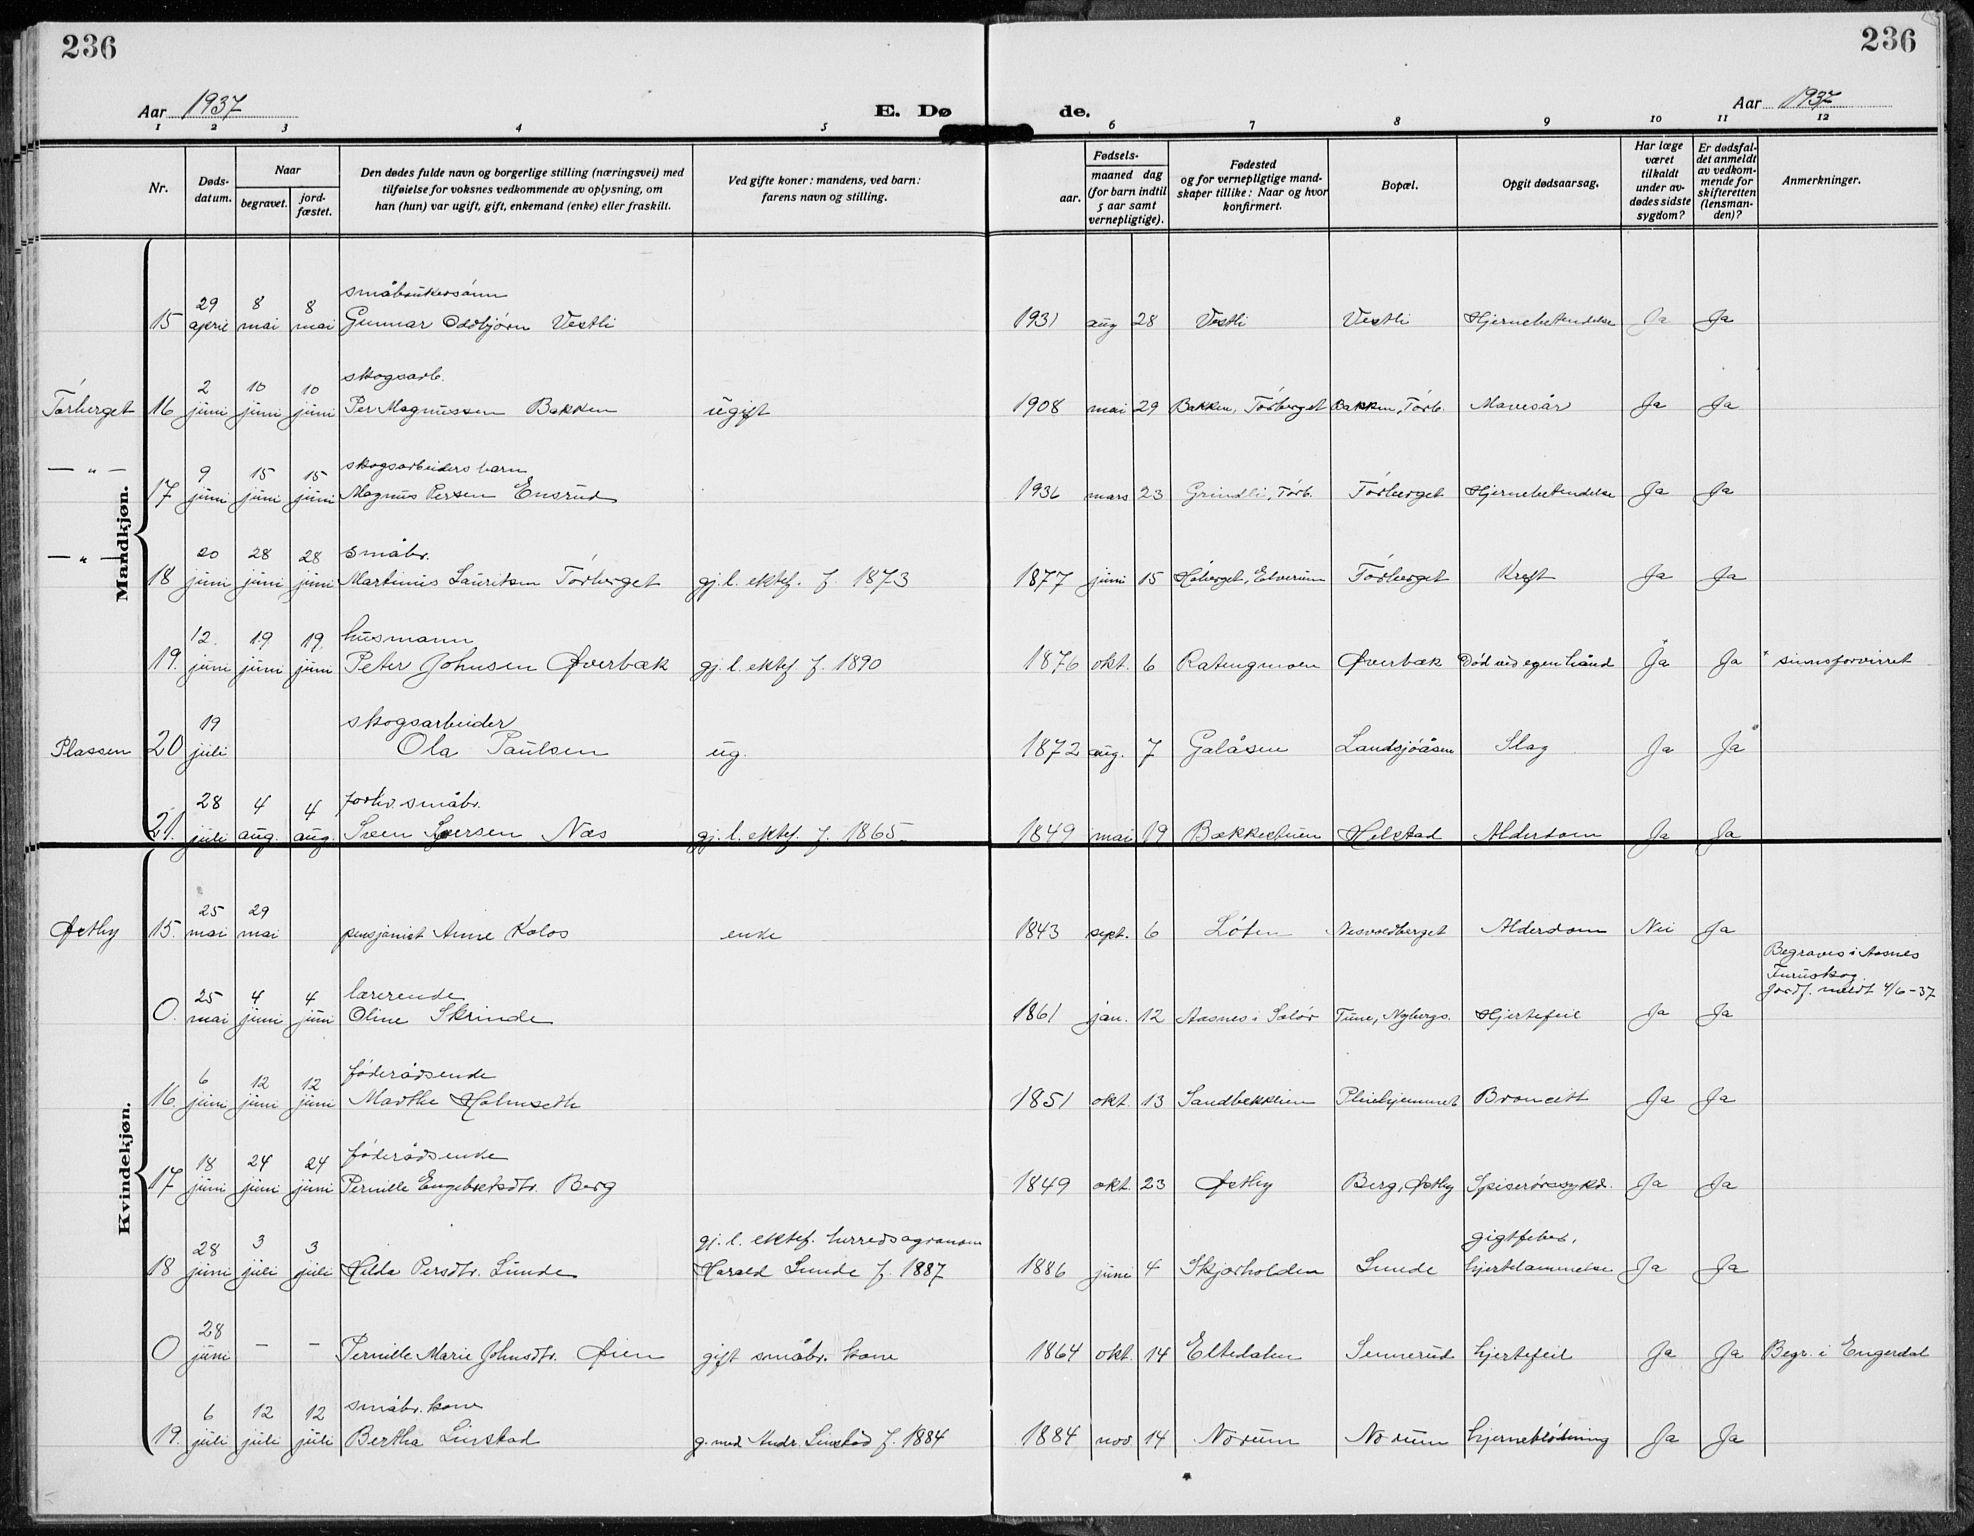 236
236
Aar 1937
E. Dø
de.
Aar 1937
1 2 3 4 5 6 7 8 9 10 11 12
Nr.
Døds-
datum.
Naar
begravet.
jord-
fæstet.
Den dødes fulde navn og borgerlige stilling (næringsvei) med
tilføielse for voksnes vedkommende av oplysning, om
han (hun) var ugift, gift, enkemand (enke) eller fraskilt.
Ved gifte koner: mandens, ved barn:
farens navn og stilling.
Fødsels-
aar.
maaned dag
(for barn indtil
5 aar samt
vernepligtige).
Fødested
og for vernepligtige mand-
skaper tillike: Naar og hvor
konfirmert.
Bopæl.
Opgit dødsaarsag.
Har læge
været
tilkaldt
under av-
dødes sidste
sygdom?
Er dødsfal-
det anmeldt
av vedkom-
mende for
skifteretten
(lensman-
den)?
Anmerkninger.
Mandkjøn.
29 8 8 småbrukersønn
15 april mai mai Gunnar Oddbjørn Vestli 1931 aug 28 Vestli Vestli Hjernebetendelse Ja Ja
2 10 10 skogsarb.
Tørberget 16 juni juni juni Per Magnussen Bakken ugift 1908 mai 29 Bakken, Tørberget Bakken, Tørb. Mavesår Ja Ja
— " — 9 15 15 skogsarbeiders barn
17 juni juni juni Magnus Persen Ensrud 1936 mars 23 Grindli, Tørb. Tørberget Hjernebetendelse Ja Ja
— " — 20 28 28 småbr.
18 juni juni juni Martinus Lauritsen Tørberget gj. l. ektef. f. 1873 1877 juni 15 Høberget, Elverum Tørberget Kreft Ja Ja
12. 19 19. husmann
19. juni juni juni Peter Johnsen Øverbæk gj. l. ektef f. 1890 1876 okt. 6 Øverbæk Død ved egen hånd Ja Ja sinnsforvirret
19 skogsarbeider
Plassen 20 juli Ola Paulsen ug. 1872 aug. 7 Galåsen Landsjøåsen Slag Ja Ja
28 4 4 forhv. småbr.
21. juli aug. aug. Sven Næs gj. l. ektef. f. 1865. 1849 mai 19 Alderdom Ja Ja
Kvindekjøn.
25 29
Østby 15. mai mai pensjonist Anne Kolos enke 1843 sept. 6 Løten Nesvoldberget Alderdom Nei Ja
Begraves i Aasnes
Furuskog.
Jordf. meldt 4/6-37
25 4 4 lærerenke
0. mai juni juni Oline Skrinde 1861 jan. 12 Aasnes i Solør Tune, Nybergs. Hjertefeil Ja Ja
6 12 12 føderådsenke
16. juni juni juni Marthe Holmseth 1851 okt. 13 Sandbekklien Pleiehjemmet Broncitt Ja Ja
18 24 24 føderådsenke
17 juni juni juni Pernille Engebretsdtr. Berg 1849 okt. 23 Østby Berg, Østby Spiserørssykd. Ja Ja
28 3 3 gj. l. ektef. herredsagronom gigtfeber,
18 juni juli juli Hilda Persdtr. Sunde Harald Sunde f. 1887 1886 juni 4 Skjærholden Sunde hjertelammelse Ja Ja
28
0 juni — — Pernille Marie Johnsdtr. Øien gift småbr. kone 1864 okt. 14 Eltedalen Sennerud hjertefeil Ja Ja Begr. i Engerdal
6 12 12 småbr. kone
19. juli juli juli Bertha Linstad g. med Andr. Linstad f. 1884 1884 nov. 14 Norum Norum hjerneblødning Ja Ja